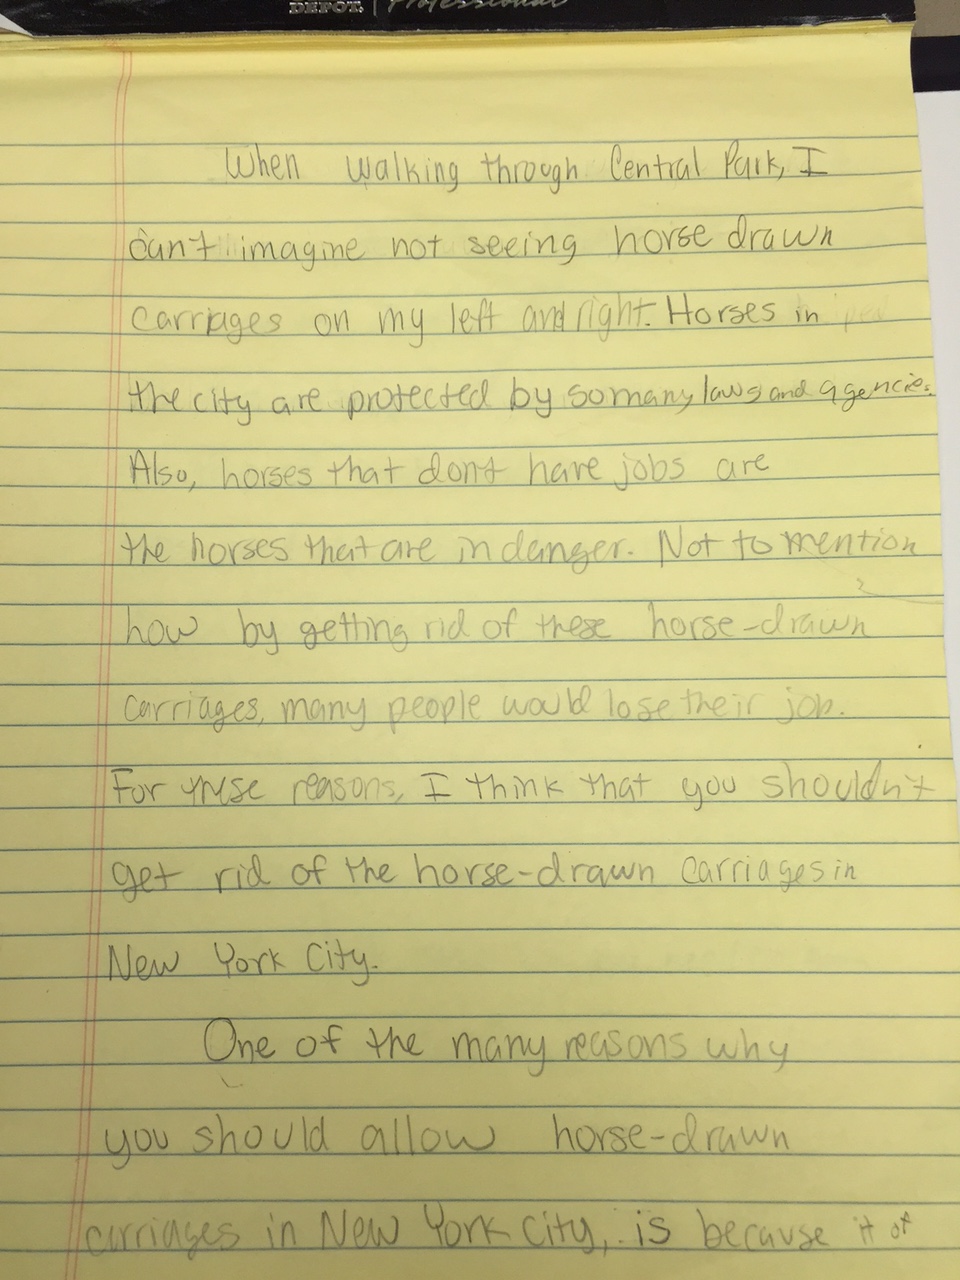 DEPOT Professional
When walking through Central Park, I
can't imagine not seeing horse drawn
carriages on my left and right. Horses in
the city are protected by so many laws and agencies.
Also, horses that don't have jobs are
the horses that are in danger. Not to mention
how by getting rid of these horse-drawn
carriages, many people would lose their job.
For these reasons, I think that you shouldn't
get rid of the horse-drawn carriages in
New York City.
One of the many reasons why
you should allow horse-drawn
carriages in New York City, is because it of